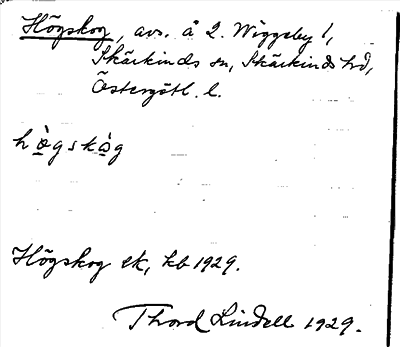 Högskog, avs. å 2. Wiggeby 1,
Skärkinds sn, Skärkinds hd,
Östergötl. l.
hògskòg
Högskog ek, kb 1929.
Thord Lindell 1929.